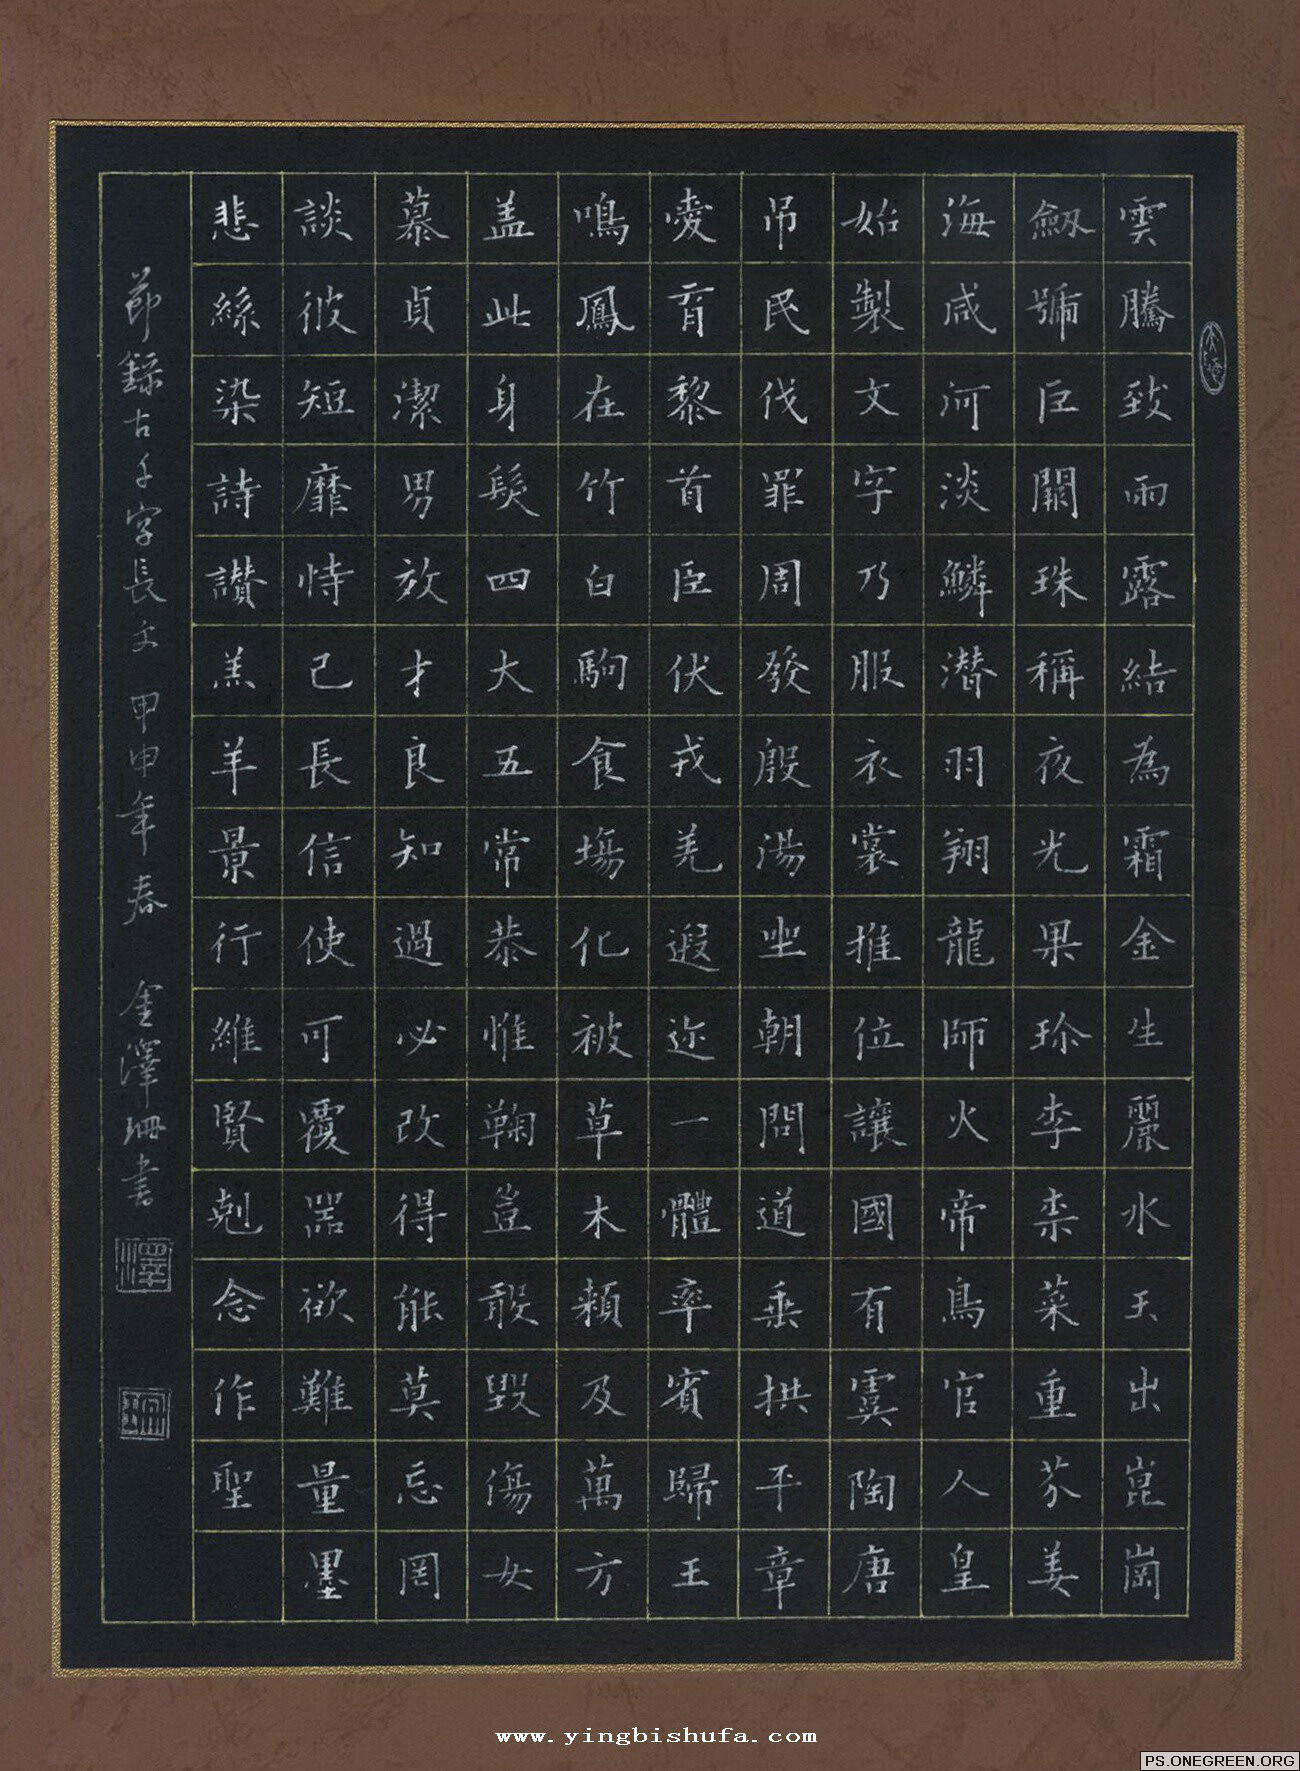 雲騰致雨露結為霜金生麗水玉出崑崗
劔號巨闕珠稱夜光果珍李柰菜重芥姜
海咸河淡鱗潛羽翔龍師火帝鳥官人皇
始製文字乃服衣裳推位讓國有虞陶唐
吊民伐罪周發殷湯坐朝問道垂拱平章
愛育黎首臣伏戎羌遐迩一體率賓歸王
鳴鳳在竹白駒食場化被草木賴及萬方
盖此身髮四大五常恭惟鞠豈敢毀傷女
慕貞潔男效才良知過必改得能莫忘罔
談彼短靡恃己長信使可覆器欲難量墨
悲絲染詩讃羔羊景行維賢剋念作聖
節録古千字長文 甲申年春 金澤珊書
澤
珊
www.yingbishufa.com
PS.ONEGREEN.ORG